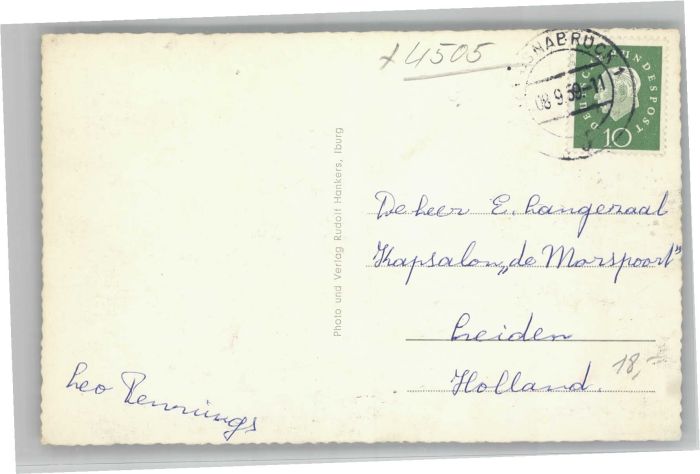 +4505
OSNABRÜCK 1
08.9.59-11
DEUTSCHE BUNDESPOST
10
Photo und Verlag Rudolf Hankers, Iburg
De heer E. Langezaal
Kapsalon „de Morspoort"
Leiden
Holland.
18,-
Leo Pennings